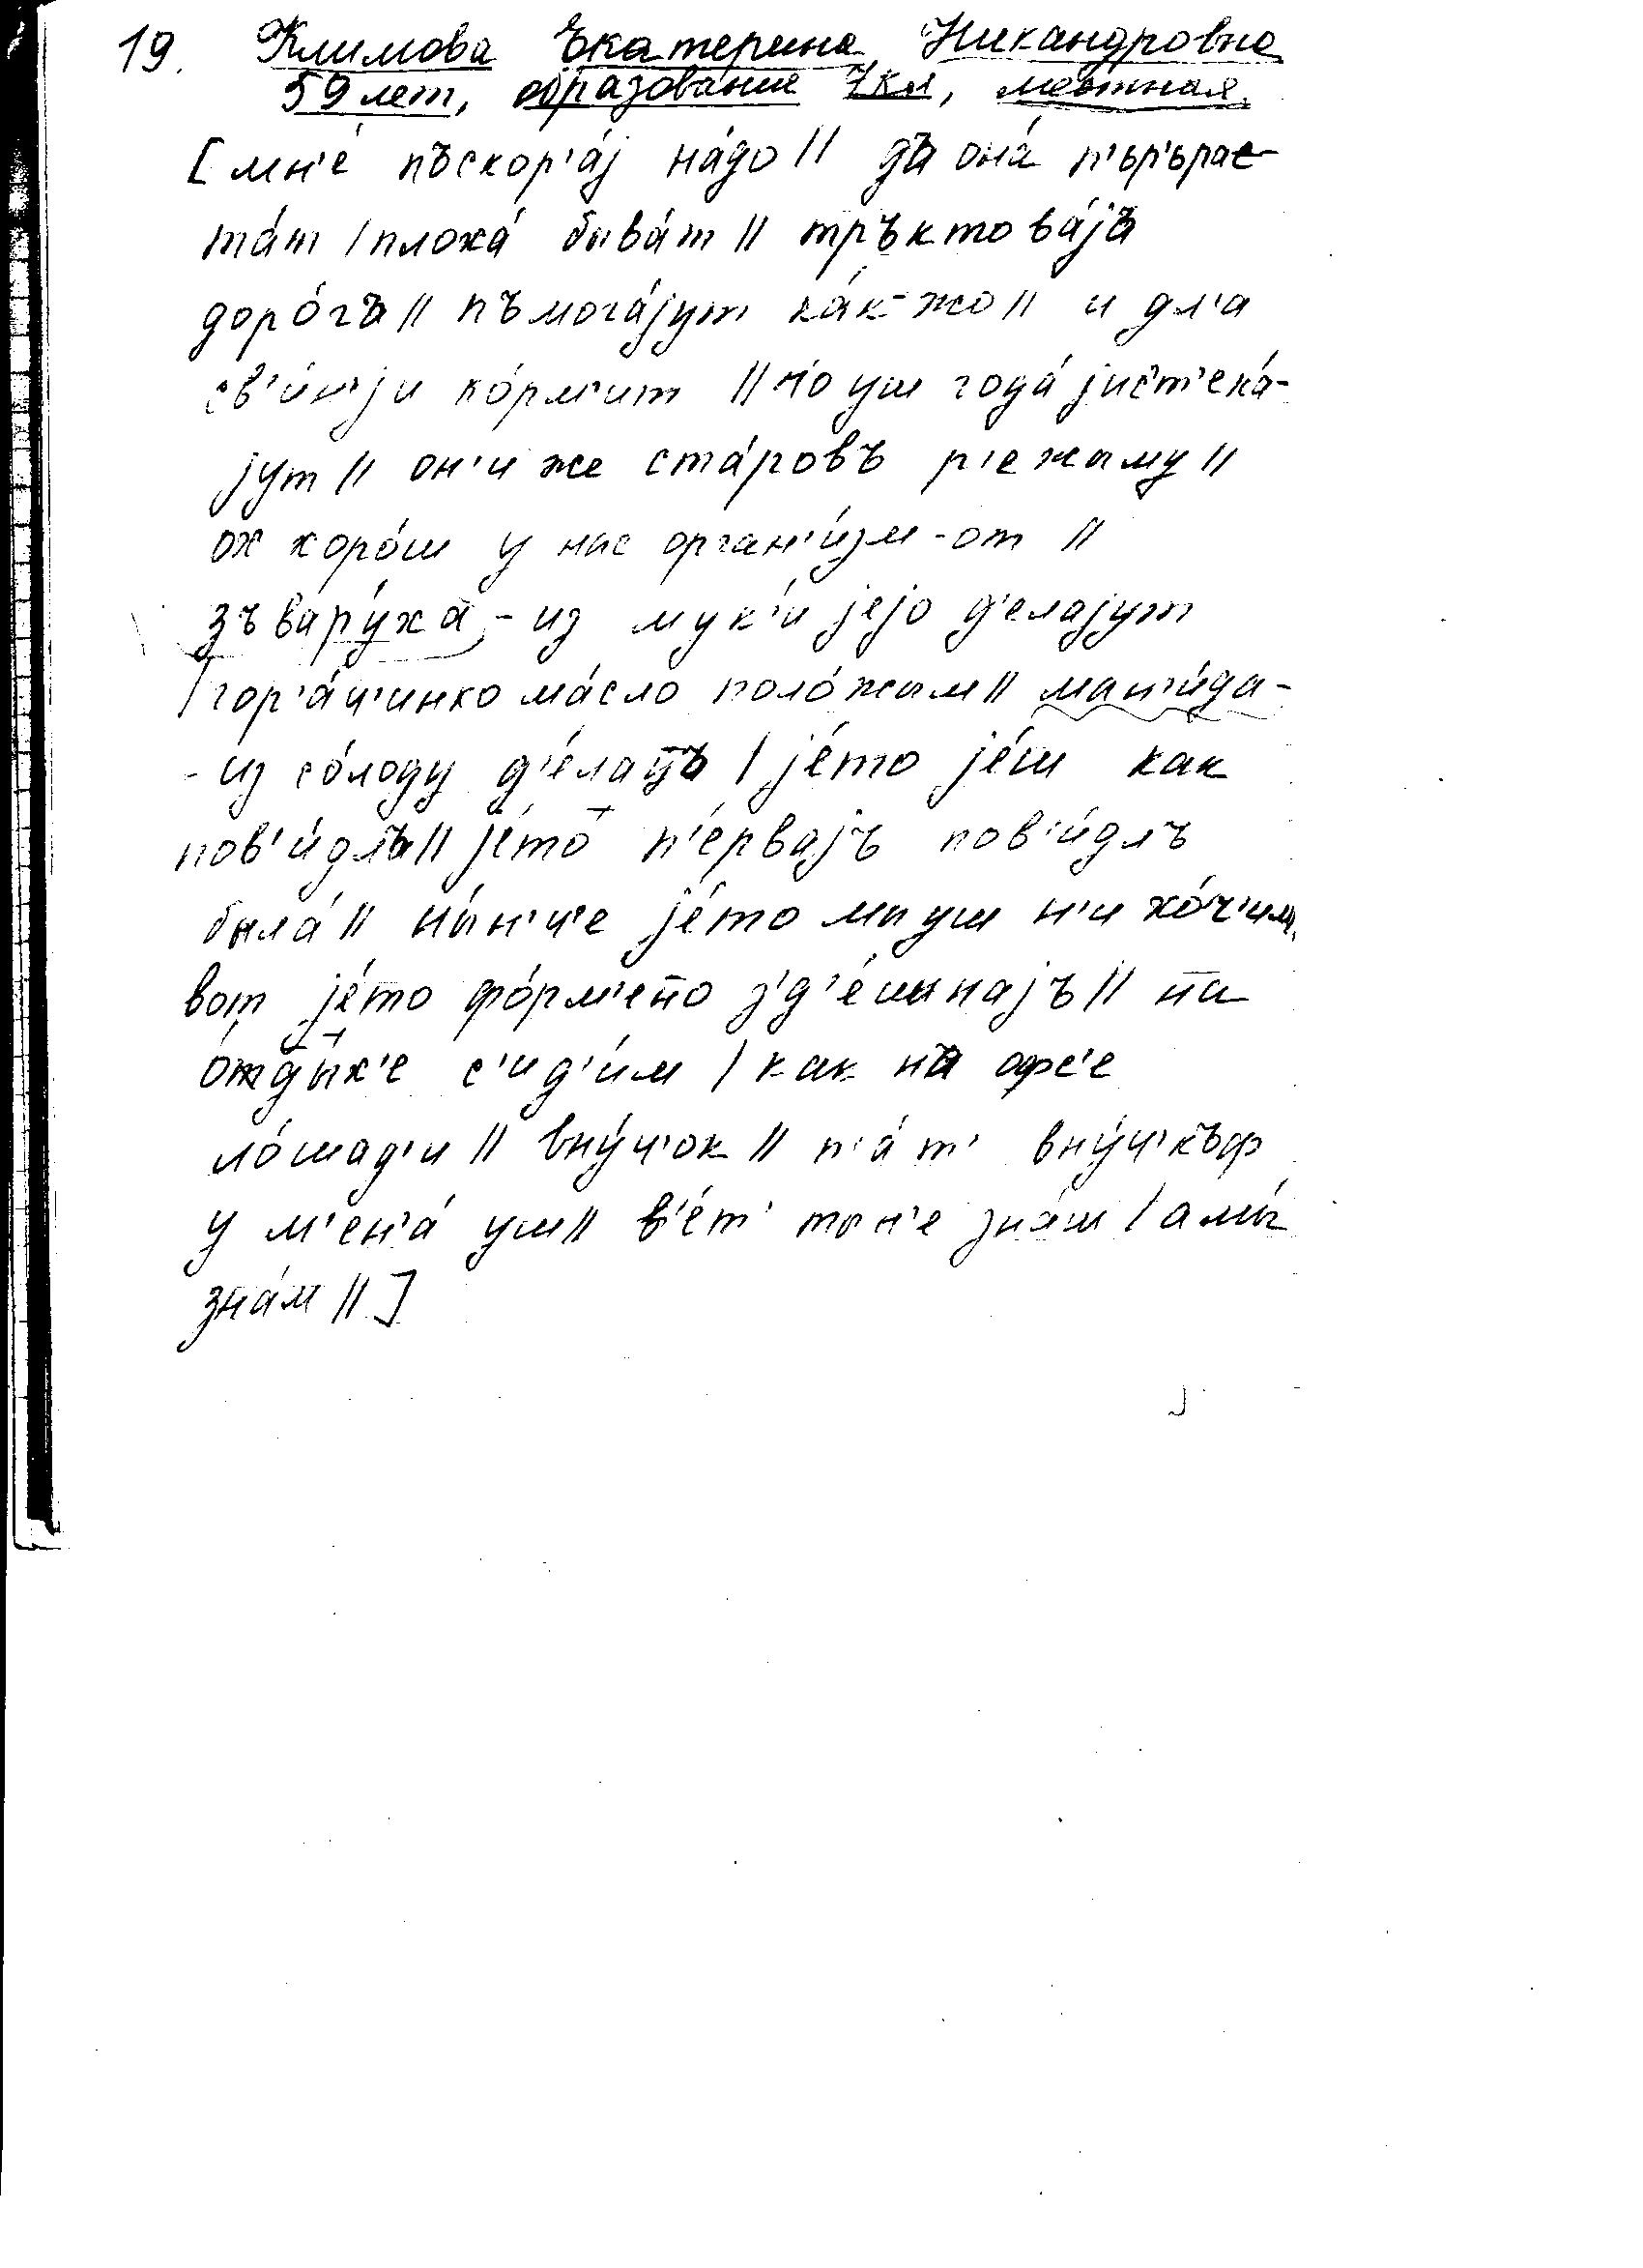 19. Климова Екатерина Никандровна
59 лет, образование 7кл, местная.
[мн'е́ пъскор'а́j на́до // дъ она́ п'ьр'ьрас-
та́т / плоха́ быва́т // тръктова́jъ
доро́гъ // пъмога́jут ка́к-жо // и дл'а
св'и́н'jи ко́рм'ит // но уш года́ jист'ека́-
jут // он'и же ста́ровъ р'ежыму //
ох хоро́ш у нас орган'и́зм-от //
зъвару́ха - из мук'и́ jеjо д'елаjут
/ гор'а́ч'инко ма́сло поло́жым //
- из со́лоду д'е́лацъ / jе́то jе́ш как
пов'и́длъ // jе́то п'е́рваjъ пов'и́длъ
была́ // ны́н'ч'е jе́то мы уш н'и хо́ч'им,
вот jе́то фо́рм'енно з'д'е́шнаjъ // на
о́тды́х'е с'ид'и́м / как на офс'е
ло́шад'и // вну́ч'ок // п'а́т' вну́ч'къф
у м'ен'а́ уш // в'е́т' ты н'е зна́ш / а мы́
зна́м // ]